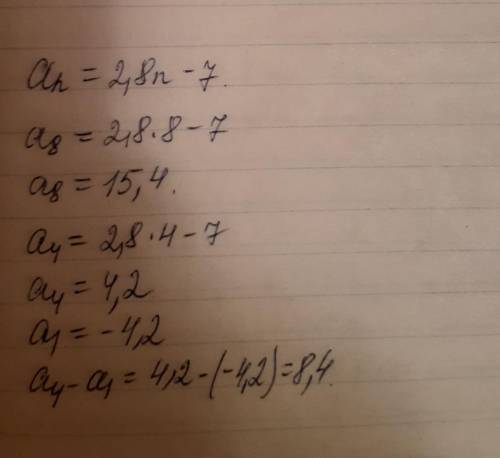 an = 2,8n - 7.
a8 = 2,8·8 - 7
a8 = 15,4.
a4 = 2,8·4 - 7
a4 = 4,2
a1 = -4,2
a4 - a1 = 4,2 - (-4,2) = 8,4.